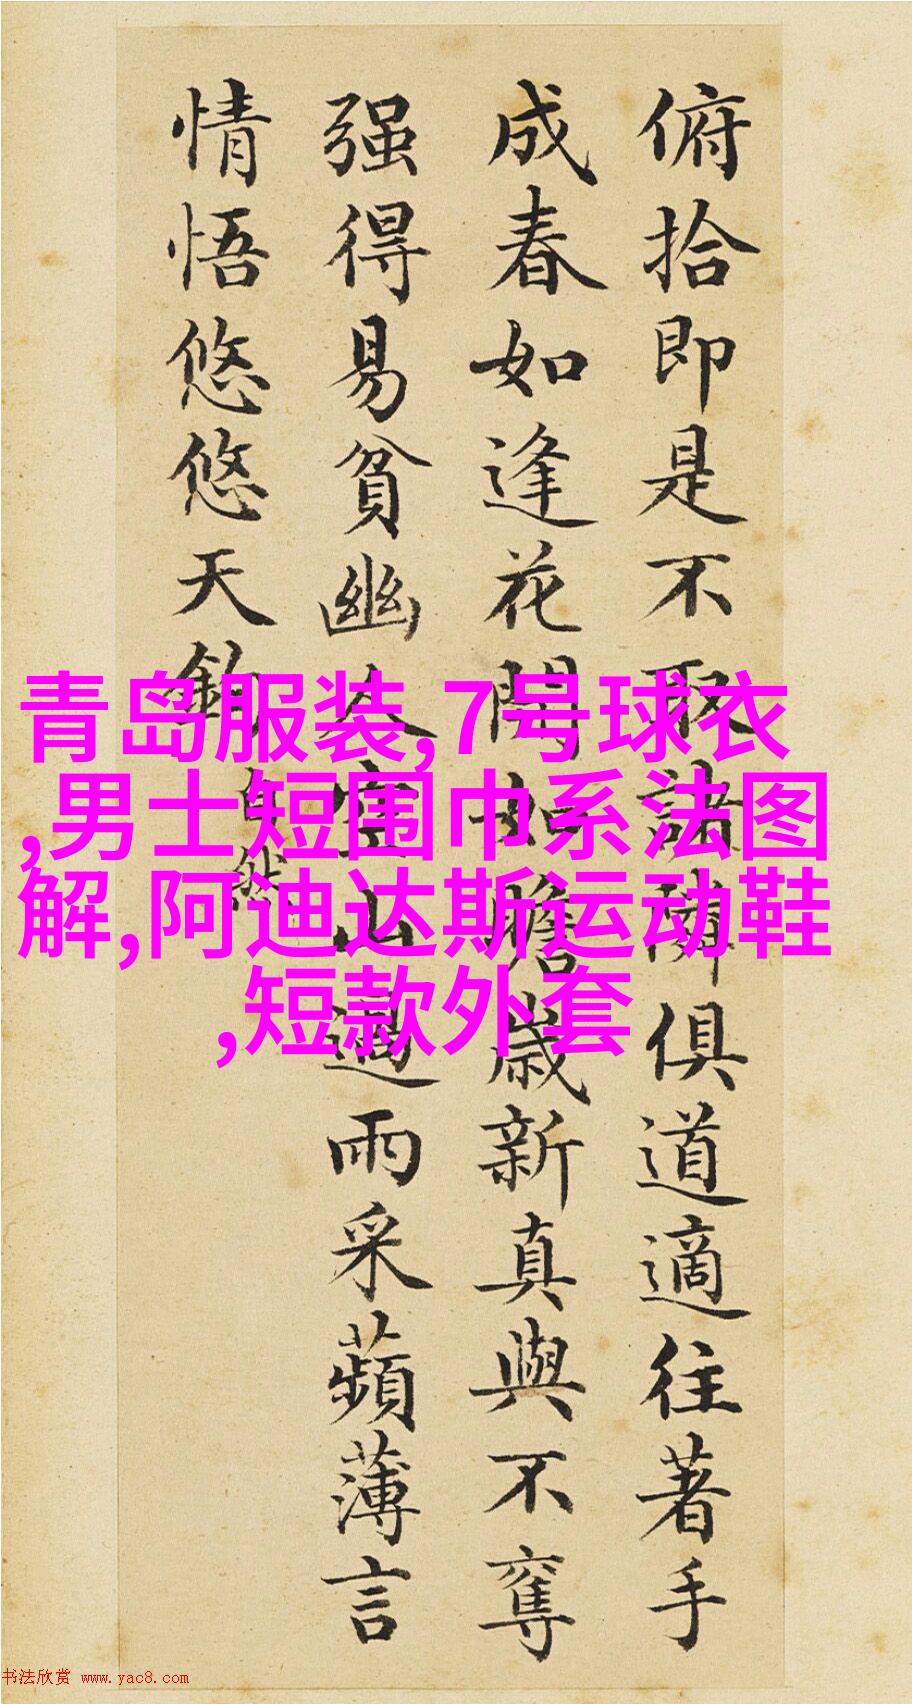 俯拾即是不取諸隣俱道適往著手
成春如逢花開如瞻歳新真與不奪
强得易貧幽人空山過雨采蘋薄言
情悟悠悠天鈞
自然
青岛服装,7号球衣
,男士短围巾系法图
解,阿迪达斯运动鞋
,短款外套
书法欣赏 www.yac8.com